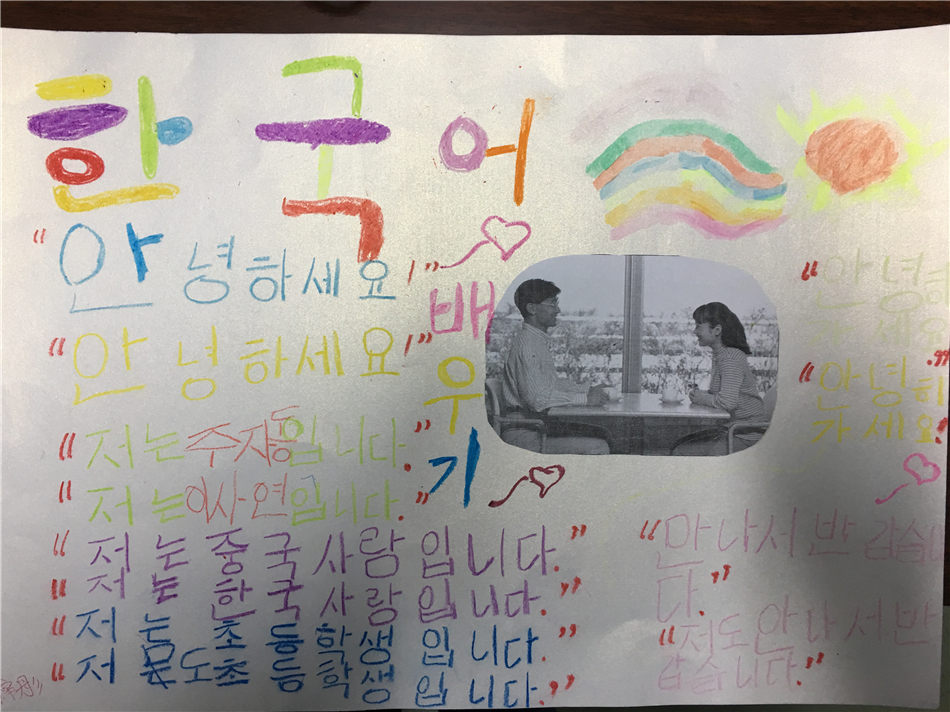 한국어
배우기
"안녕하세요!"
"안녕하세요!"
"저는주자동입니다."
"저는이사연입니다."
"저는 중국사람 입니다."
"저는 한국사랑 입니다."
"저는 초등학생 입니다."
"저도초등학생 입니다."
"안녕히
세요."
"안녕히
가세요!"
"만나서 반갑습니
다."
"저도만나서반
갑습니다."